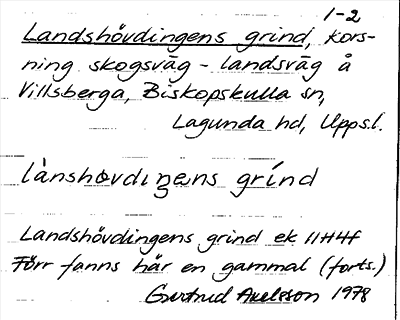 1-2
Landshövdingens grind, kors-
ning skogsväg - landsväg å
Villsberga, Biskopskulla sn,
Lagunda hd, Upps.l.
lànshøvdıŋens grínd
Landshövdingens grind ek 11H4f
Förr fanns här en gammal (forts.)
Gertrud Axelsson 1978